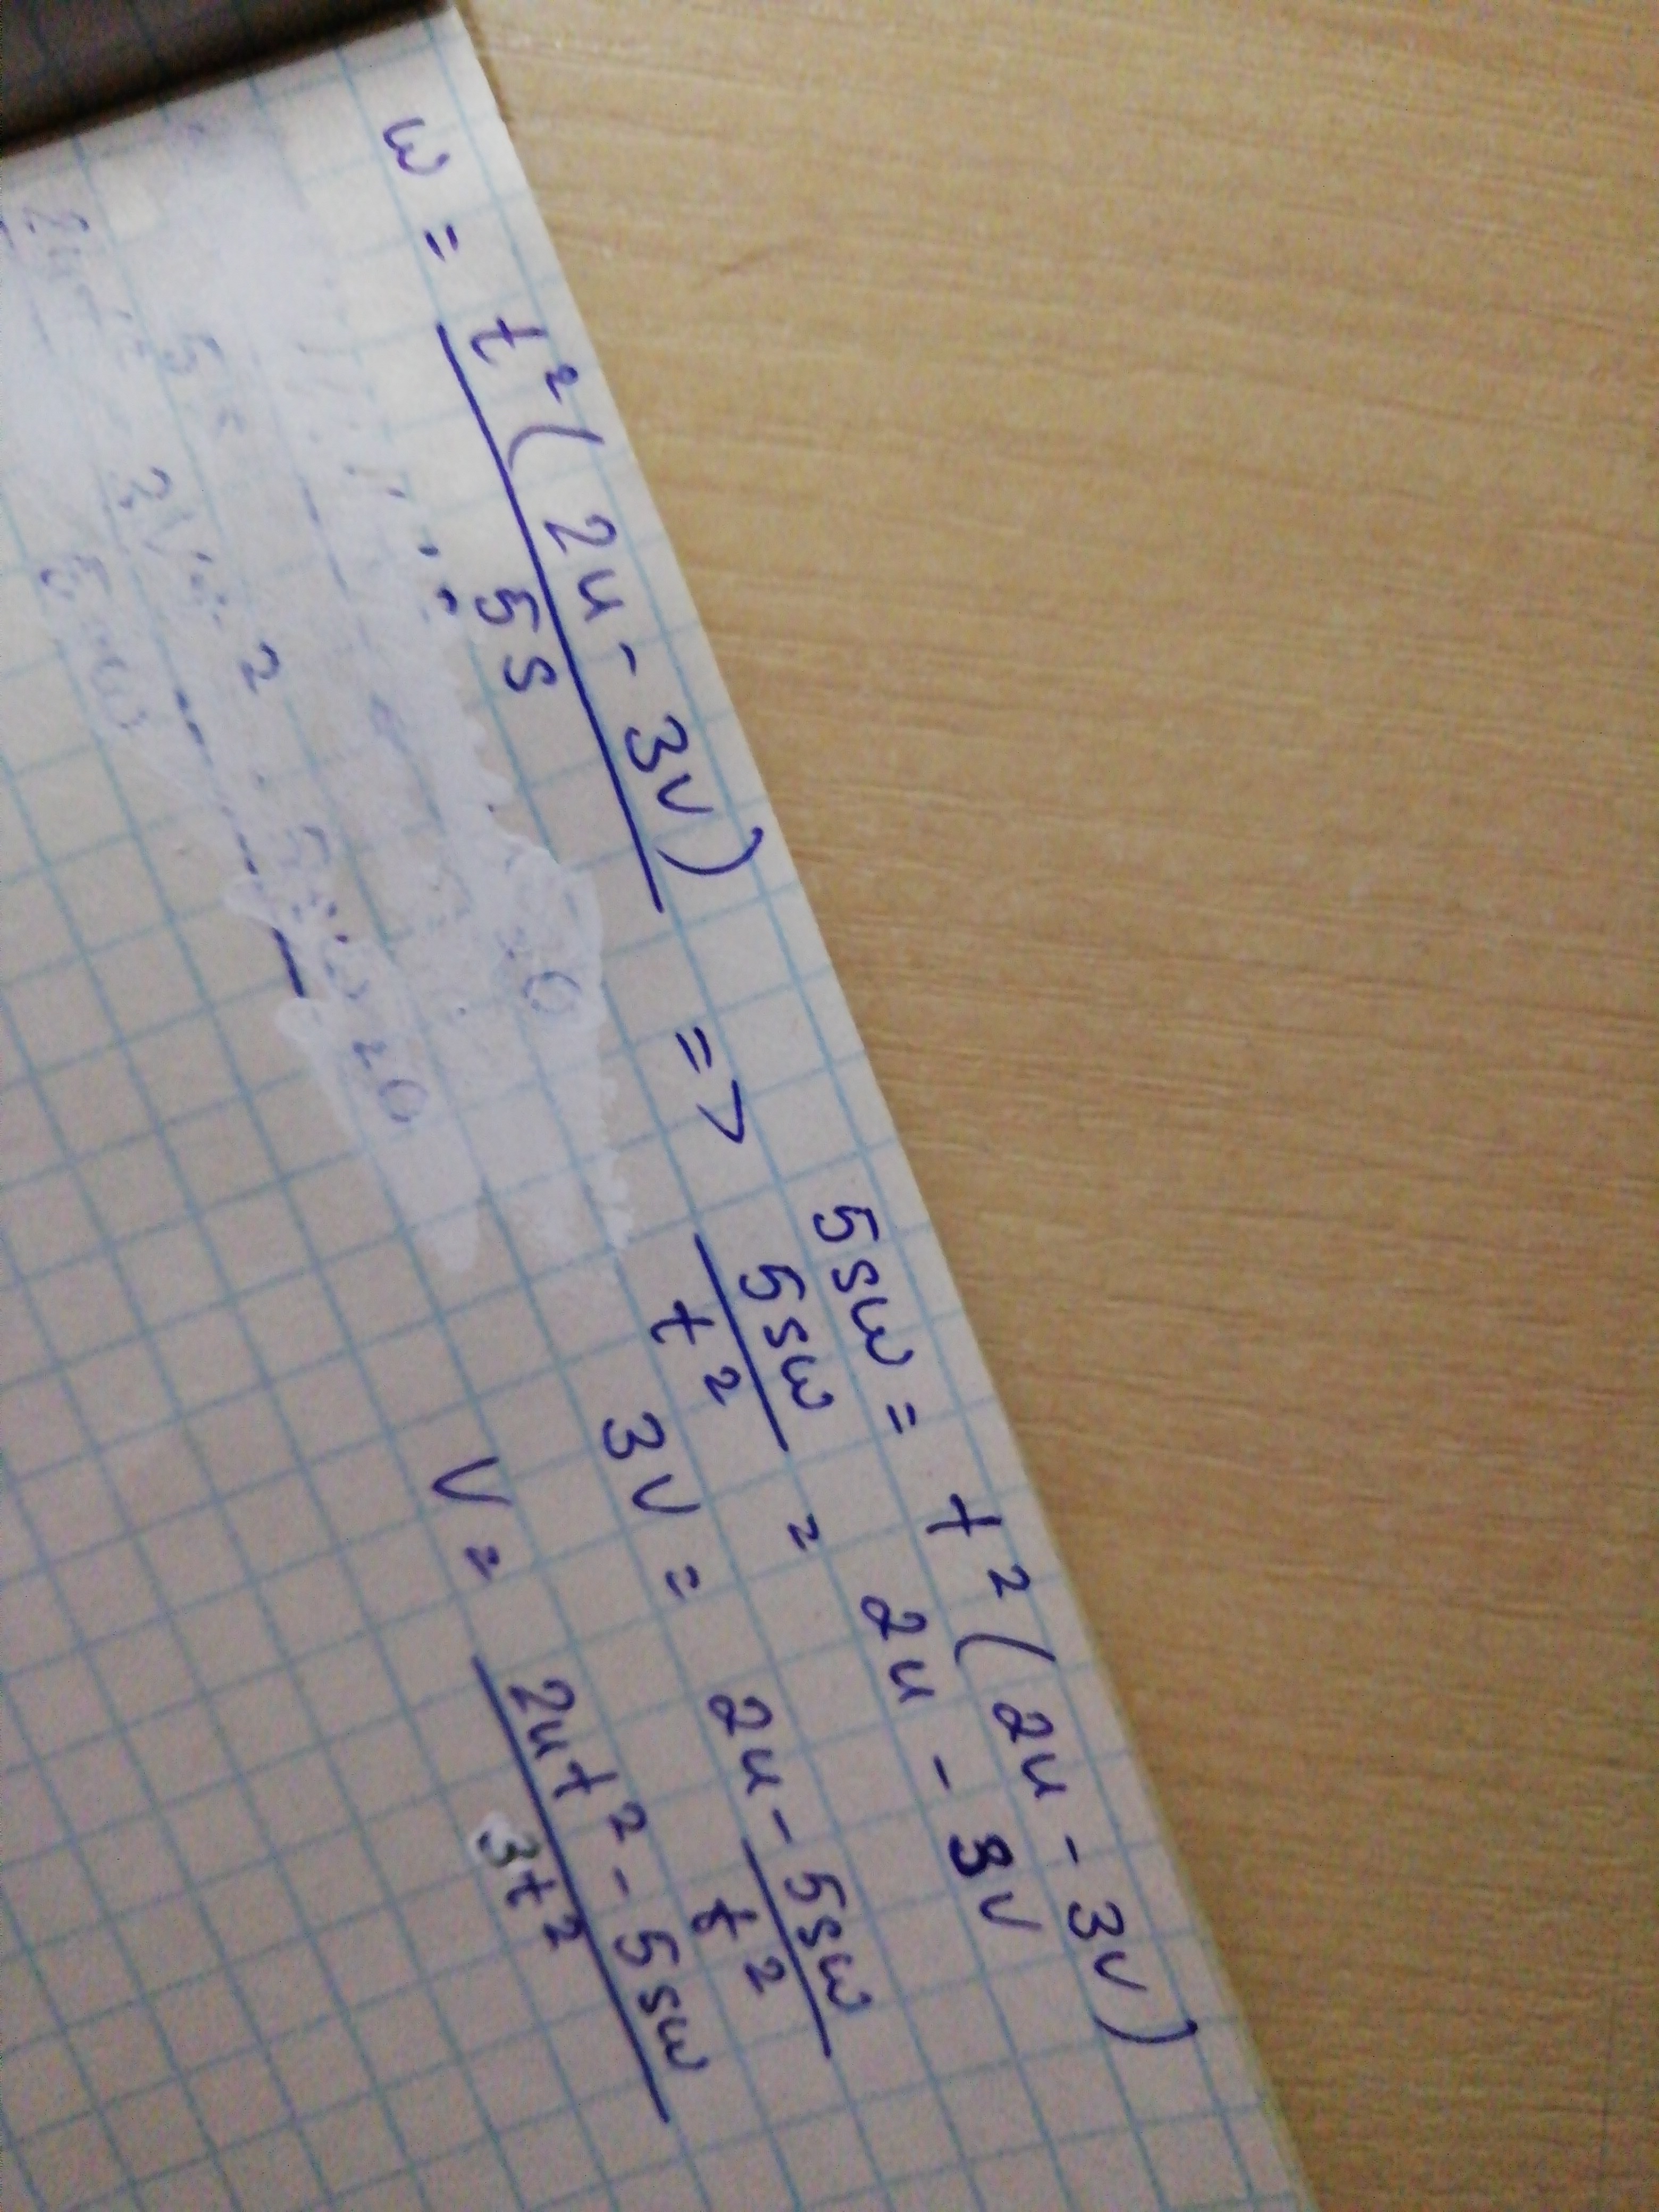 w = t²(2u - 3v) / 5s => 5sw = t²(2u - 3v)
5sw / t² = 2u - 3v
3v = 2u - 5sw / t²
v = 2ut² - 5sw / 3t²